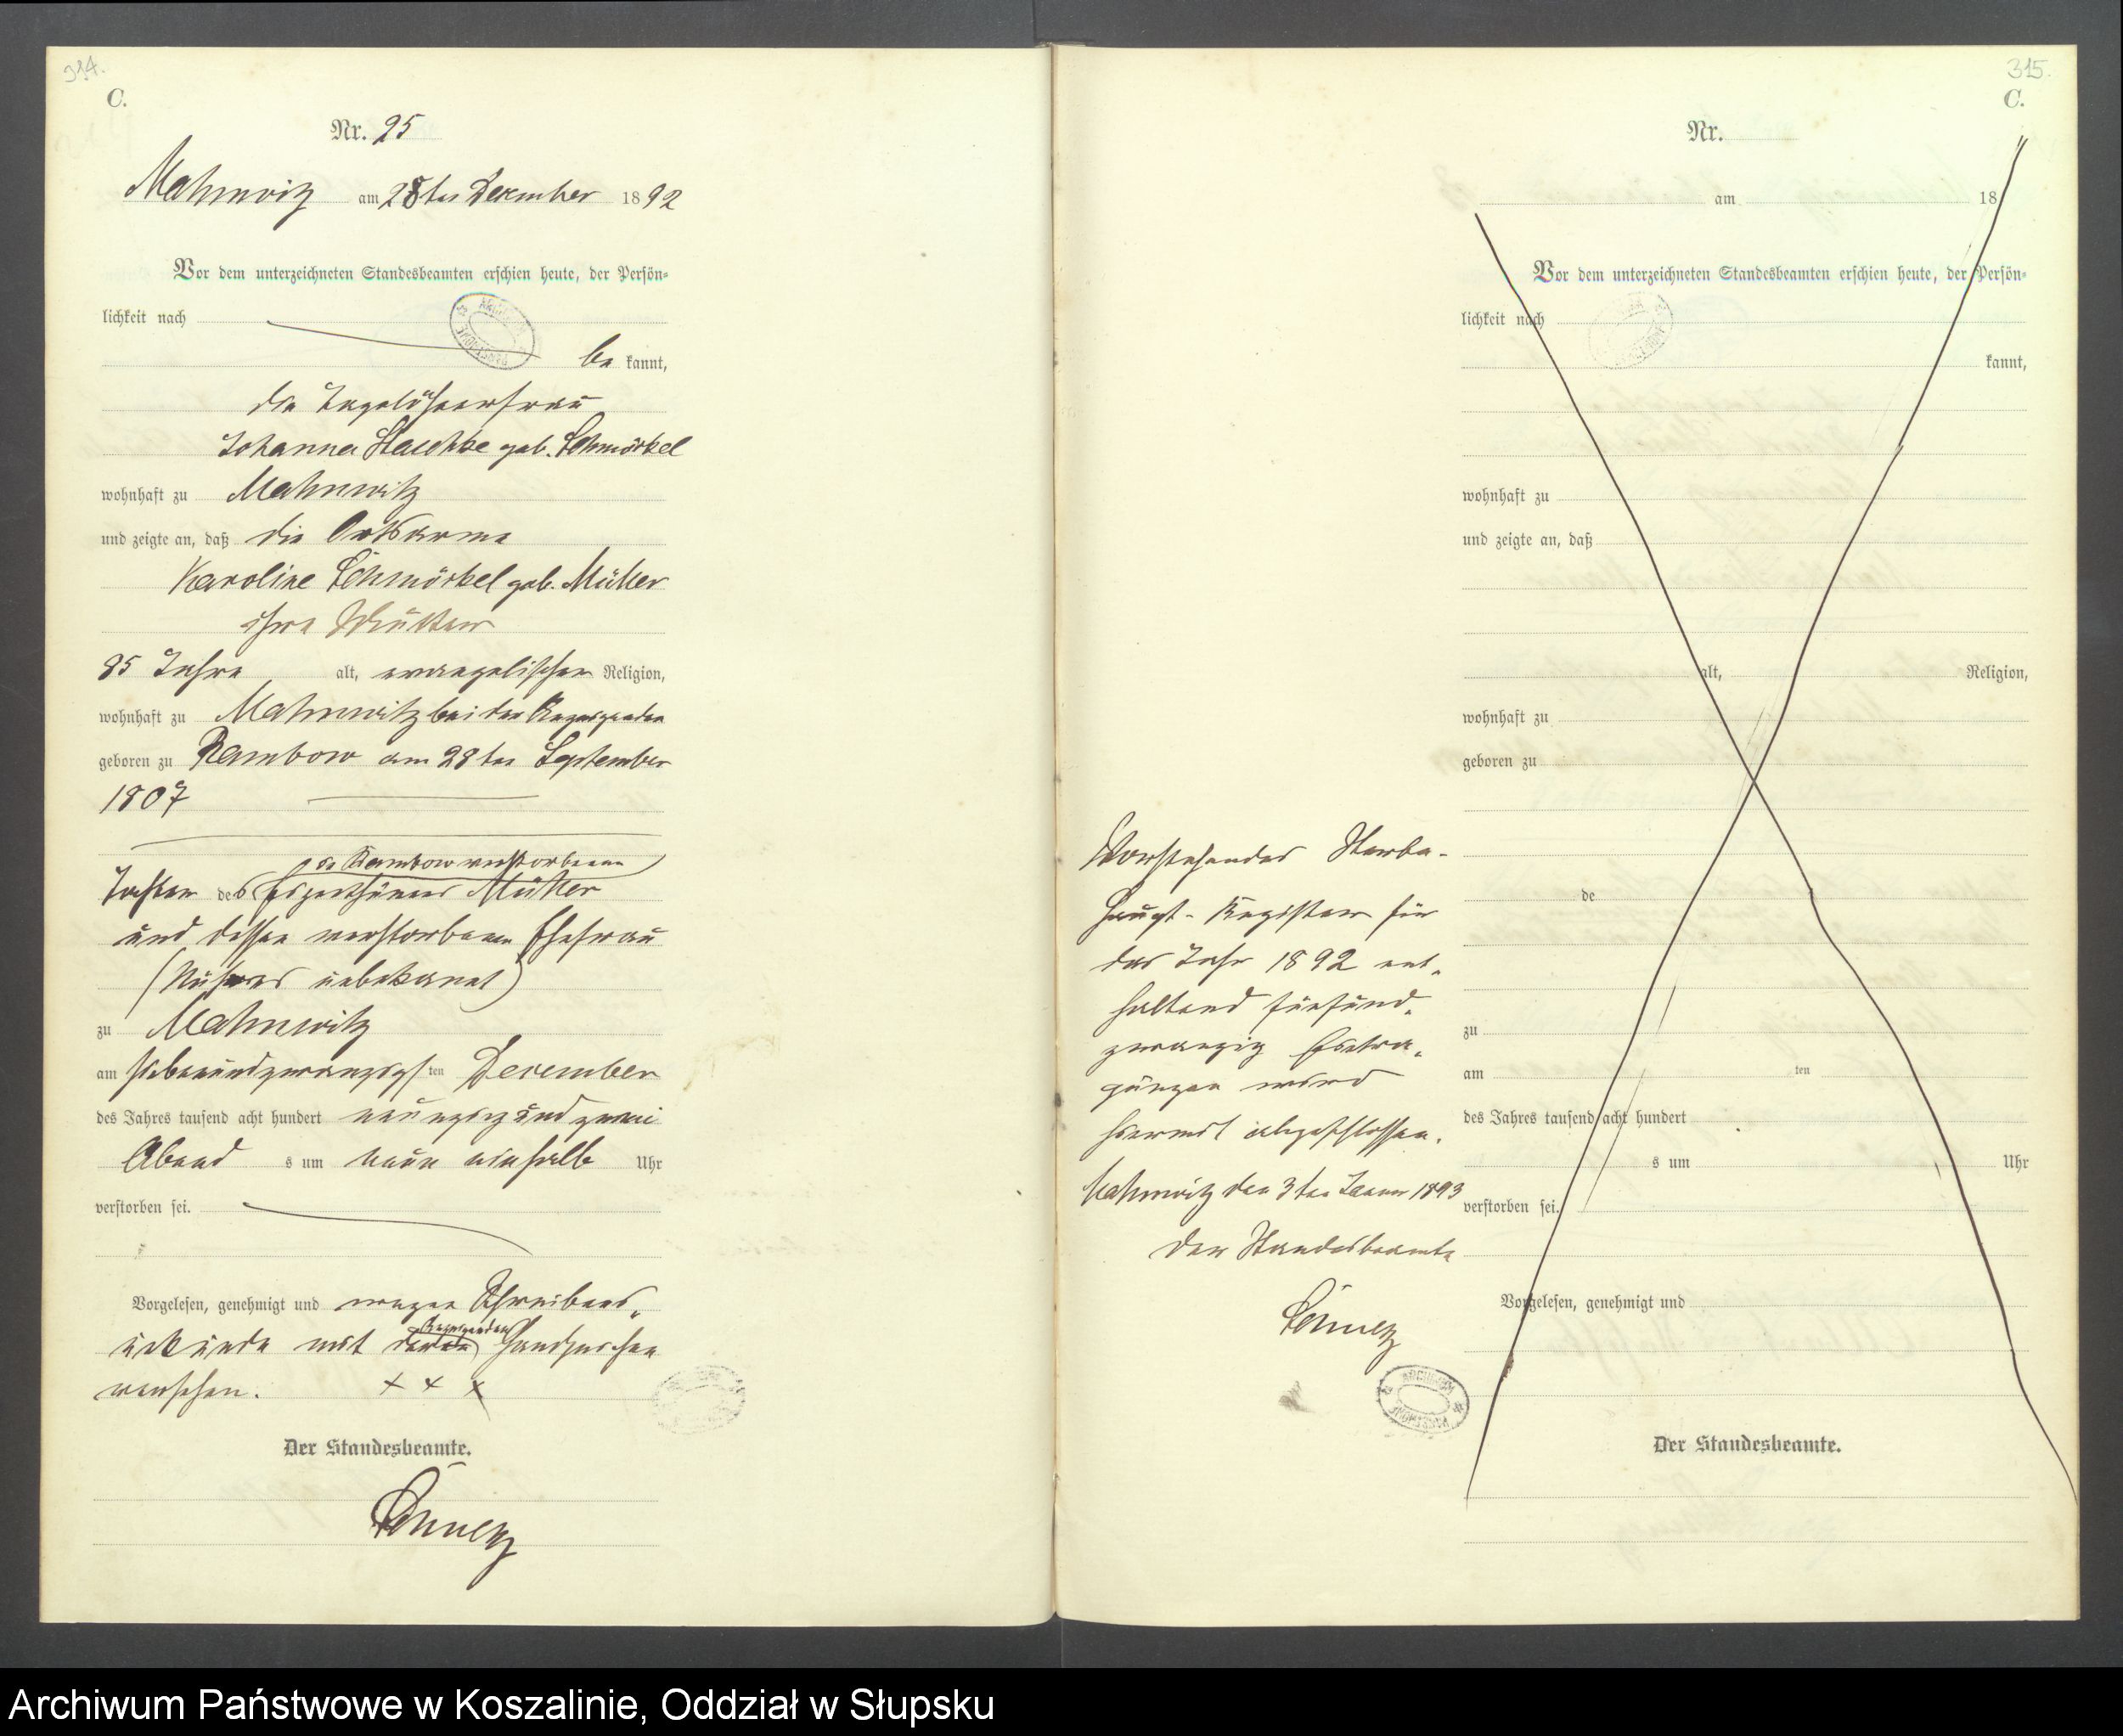 314.
C.
Nr. 25
Mahnwitz am 28ten December 1892
Vor dem unterzeichneten Standesbeamten erschien heute, der Persön-
lichkeit nach
be kannt,
die Tagelöhnerfrau
Johanna Raschke geb. Schmörkel
wohnhaft zu Mahnwitz
und zeigte an, daß die Ortsarme
Karoline Schmörkel geb. Müller
ihre Mutter
85 Jahre alt, evangelischer Religion,
wohnhaft zu Mahnwitz bei der Anzeigenden
geboren zu Rambow am 28ten September
1807
zu Rambow verstorbenen
Tochter des Eigenthümers Müller
und dessen verstorbenen Ehefrau
(Näheres unbekannt)
zu Mahnwitz
am siebenundzwanzigsten December
des Jahres tausend acht hundert neunzig und zwei
Abend s um neun einhalb Uhr
verstorben sei.
Vorgelesen, genehmigt und wegen Schreibens-
Anzeigenden
unkunde mit deren Handzeichen
versehen. + + +
Der Standesbeamte.
315.
C.
Nr.
am 18
Vor dem unterzeichneten Standesbeamten erschien heute, der Persön-
lichkeit nach
kannt,
wohnhaft zu
und zeigte an, daß
alt, Religion,
wohnhaft zu
geboren zu
de
zu
am ten
des Jahres tausend acht hundert
s um Uhr
verstorben sei.
Vorgelesen, genehmigt und
Der Standesbeamte.
Vorstehendes Sterbe-
Haupt-Register für
das Jahr 1892 ent-
haltend fünfund-
zwanzig Eintra-
gungen wird
hiermit abgeschlossen.
Mahnwitz den 3ten Januar 1893
Der Standesbeamte
Archiwum Państwowe w Koszalinie, Oddział w Słupsku